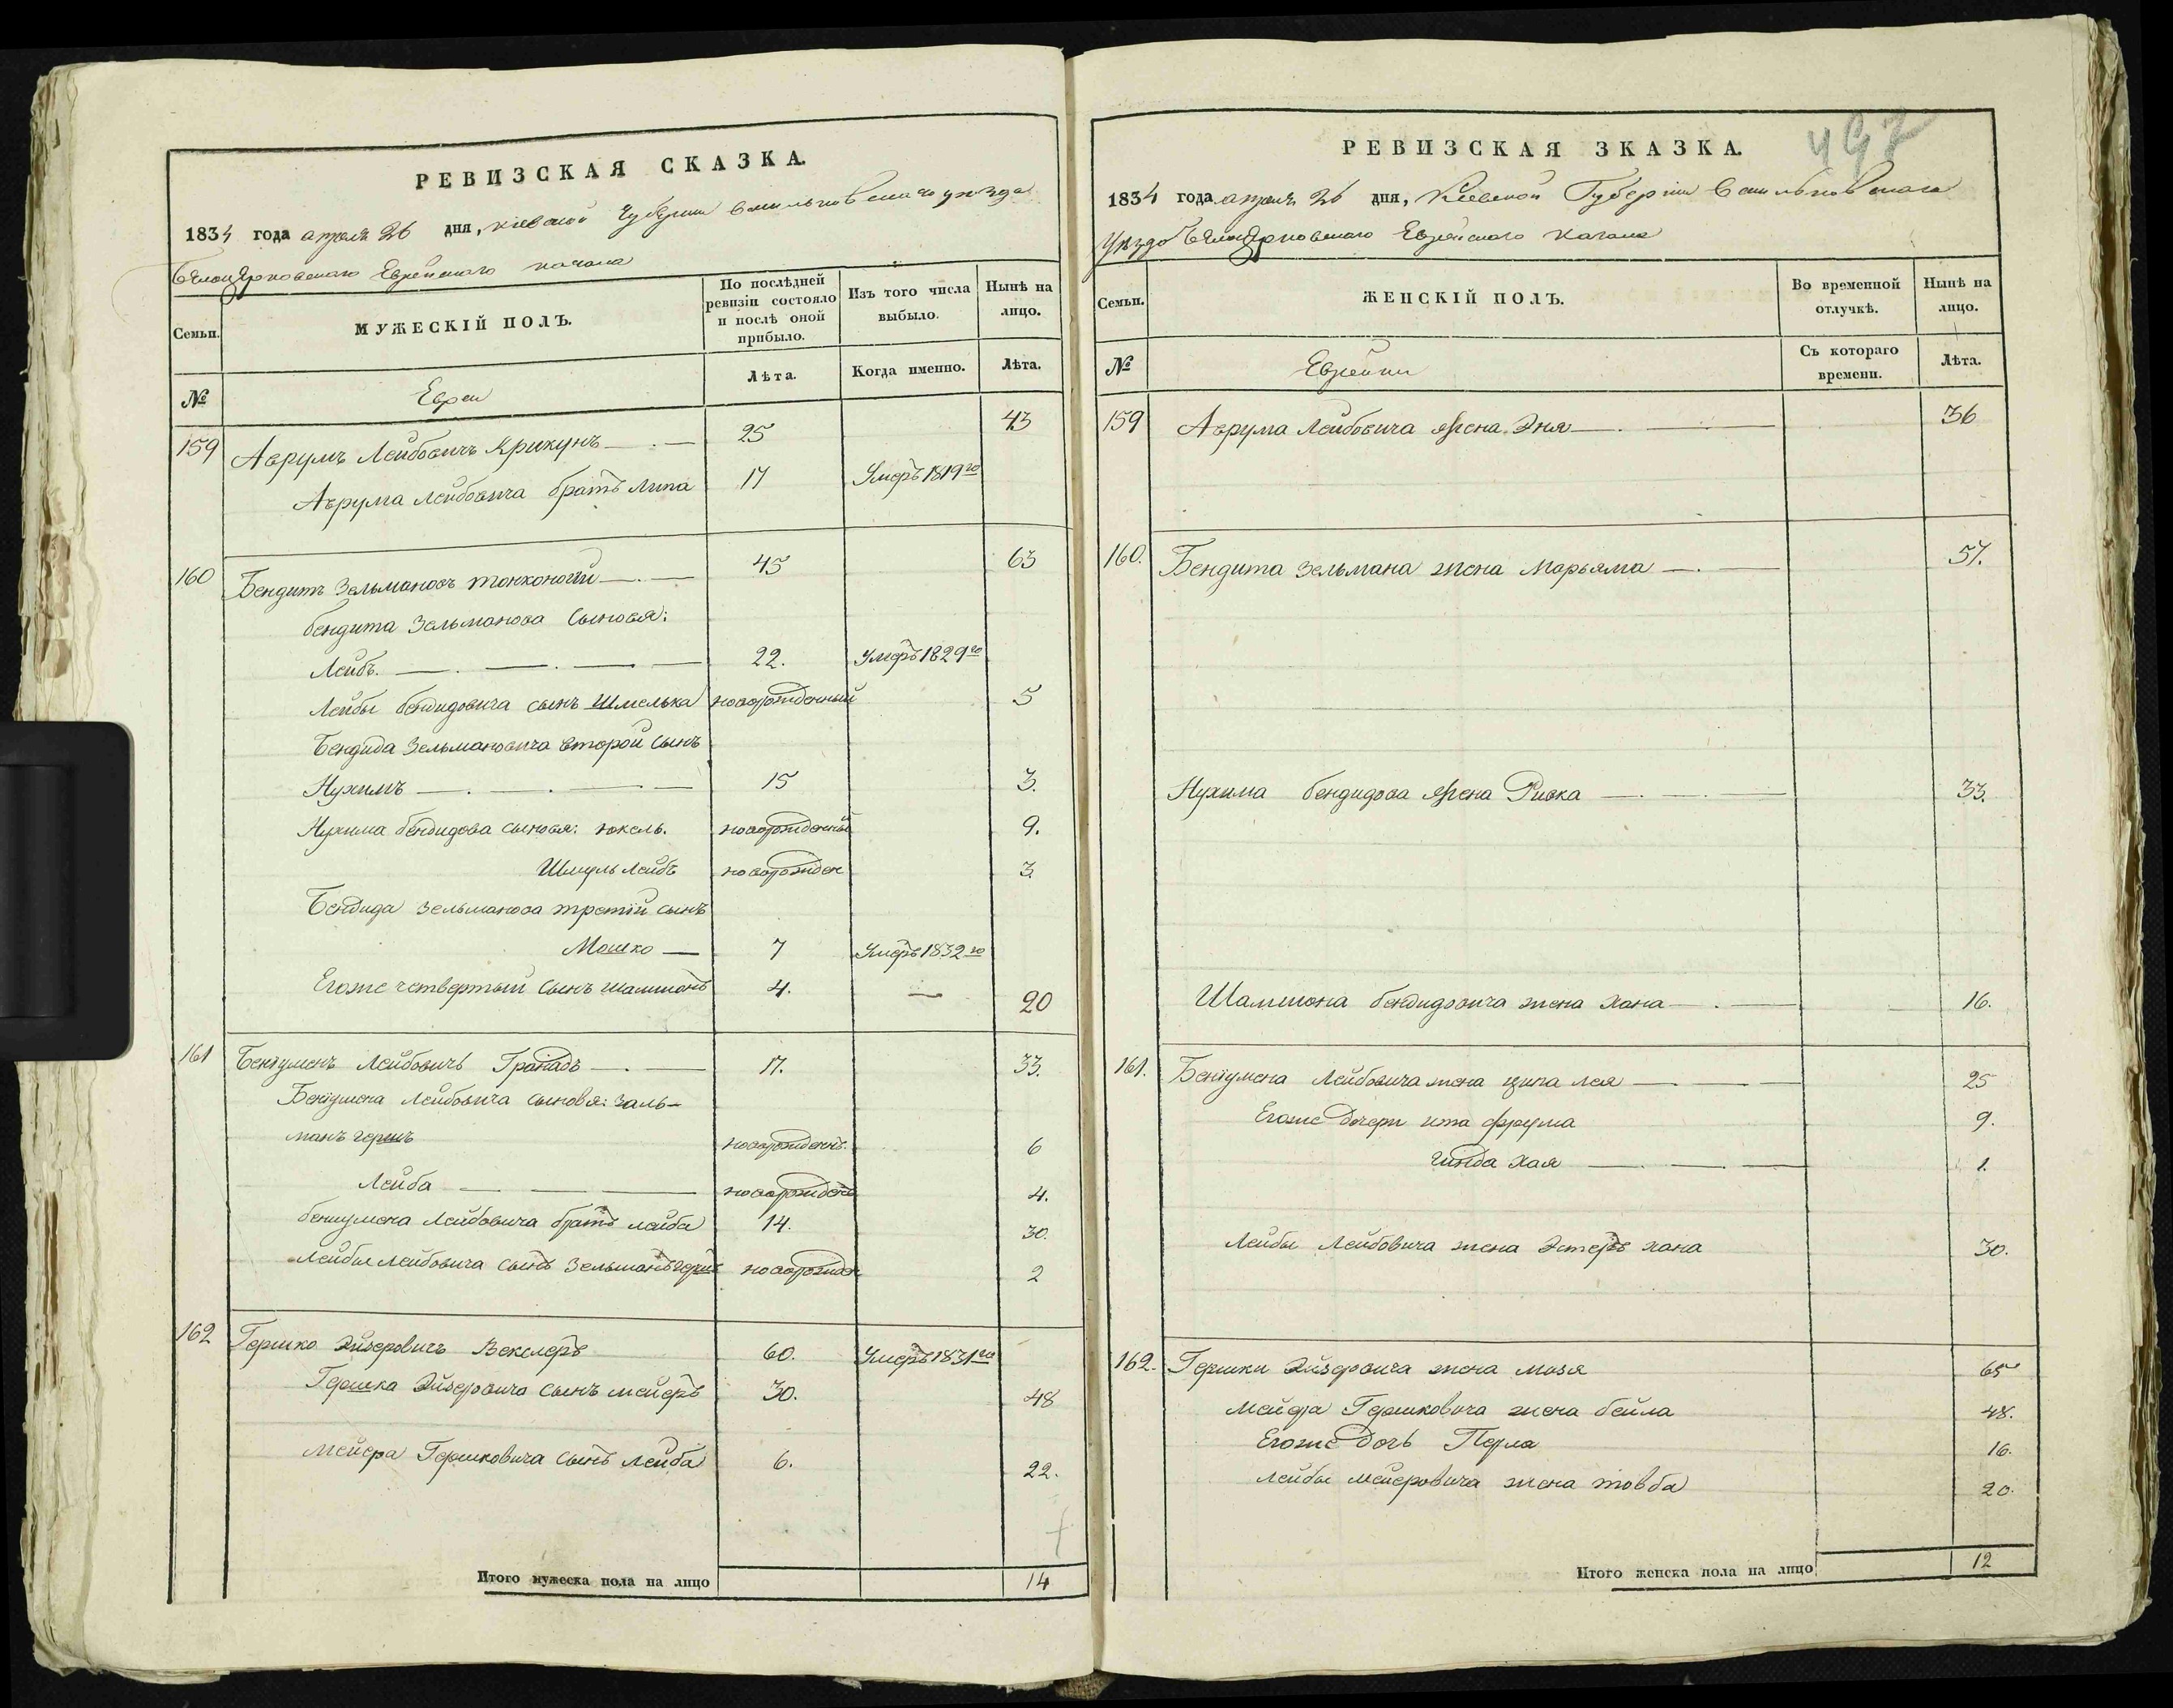 РЕВИЗСКАЯ СКАЗКА.
1834 года апреля 26 дня, Киевской Губернии Васильковскаго уезда
Белоцерковскаго Еврейскаго кагала
Семьи. МУЖЕСКІЙ ПОЛЪ. По послѣдней ревизіи состояло и послѣ оной прибыло. Изъ того числа выбыло. Нынѣ на лицо.
№ Евреи Лѣта. Когда именно. Лѣта.
159 Аврумъ Лейбовичъ Крикунъ 25 43
Аврума Лейбовича братъ Липа 17 Умеръ 1819го
160 Бендитъ Зельмановъ Тонконогій 45 63
бендита Зельманова Сыновья:
Лейбъ. 22. Умеръ 1829го
Лейбы бендидовича сынъ Шмелька новорожденный 5
Бендида Зельмановича второй сынъ
Нухимъ 15 3.
Нухима бендидова сыновья: юкель. новорожденный 9.
Шмуль Лейбъ новорожден 3.
Бендида Зельманова третій сынъ
Мошко 7 Умеръ 1832го
Егоже четвертый сынъ шамшонъ 4. — 20
161 Беніуменъ Лейбовичъ Гранадъ 17. 33.
Беніумена Лейбовича сыновья: Заль-
манъ гершъ новорожденъ. 6
Лейба новорожденъ 4.
беніумена Лейбовича братъ лейба 14. 30.
Лейбы Лейбовича сынъ Зельманъ гершъ новорожден 2
162 Гершко Эйзеровичъ Векслеръ 60. Умеръ 1831го
Гершка Эйзеровича сынъ мейеръ 30. 48
Мейера Гершковича сынъ Лейба 6. 22.
Итого мужеска пола на лицо 14
497
РЕВИЗСКАЯ ЗКАЗКА.
1834 года апреля 26 дня, Киевской Губерніи Васильковскаго
Уезда Белоцерковскаго Еврейскаго Кагала
Семьи. ЖЕНСКІЙ ПОЛЪ. Во временной отлучкѣ. Нынѣ на лицо.
№ Еврейки Съ котораго времени. Лѣта.
159 Аврума Лейбовича жена Эня 36
160. Бендита Зельмана жена Марьяма 57.
Нухима бендидова жена Ривка 33.
Шамшона бендидовича жена Хана 16.
161. Беніумена Лейбовича жена ципа лея 25
Егоже дочери ита фрума 9.
гинда Хая 1.
Лейбы Лейбовича жена Эстеръ хана 30.
162. Гершки Эйзеровича жена мизя 65
Мейера Гершковича жена бейла 48.
Егоже дочь Перла 16.
Лейбы мейеровича жена товба 20.
Итого женска пола на лицо 12